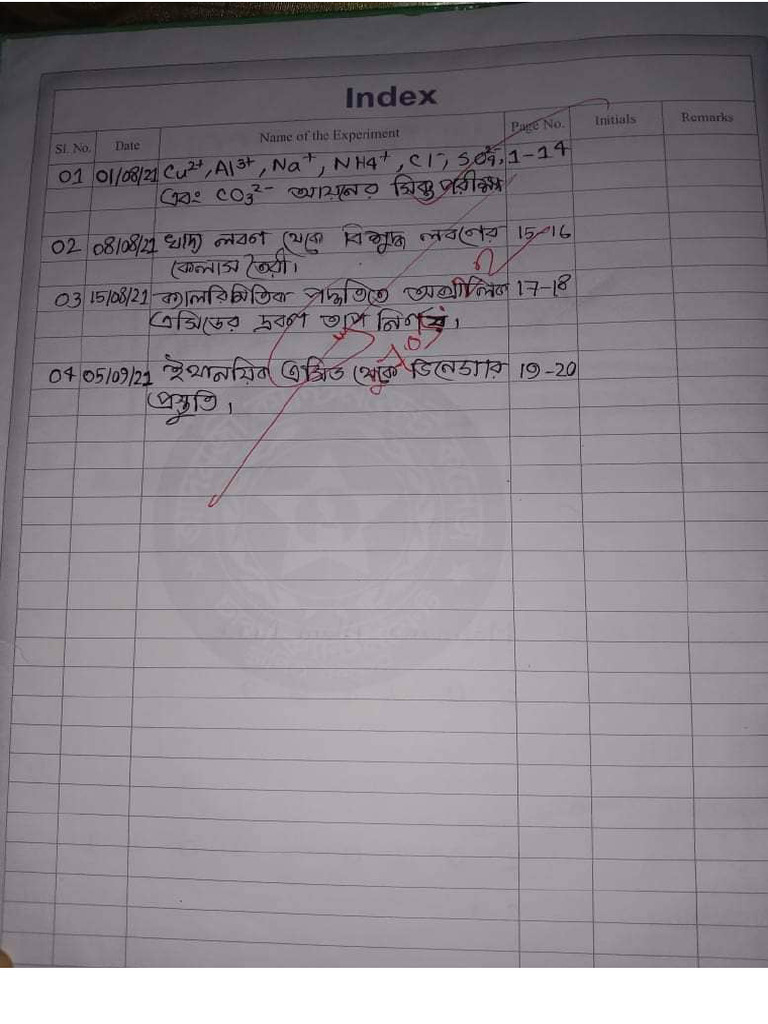 Index
Sl. No. Date Name of the Experiment Page No. Initials Remarks
01 01/08/21 Cu²⁺, Al³⁺, Na⁺, NH4⁺, Cl⁻, SO₄²⁻, 1-14
এবং CO₃²⁻ আয়নের সিক্ত পরীক্ষা
02 08/08/21 খাদ্য লবণ থেকে বিশুদ্ধ লবনের 15-16
কেলাস তৈরী।
03 15/08/21 ক্যালরিমিতিক পদ্ধতিতে অক্সালিক 17-18
এসিডের দ্রবণ তাপ নির্ণয়।
04 05/09/21 ইথানয়িক এসিড থেকে ভিনেগার 19-20
প্রস্তুতি।